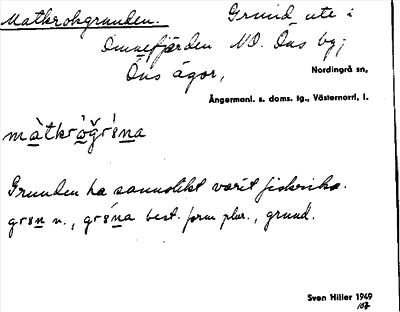 Matkroksgrunden. Grund ute i
Omnefjärden NO. Öns by;
Öns ägor,
Nordingrå sn,
Ångermanl. s. doms. tg., Västernorrl. l.
Grunden ha sannolikt varit fiskrika.
best. form plur., grund.
Sven Hiller 1949